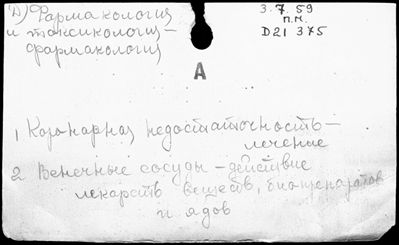 Д) Фармакология
и токсикология-
фармакология
3.7.59
П.К.
D21 375
А
1 Коронарная недостаточность-
лечение
2 Венечные сосуды-действие
лекарств веществ, биопрепаратов
и ядов